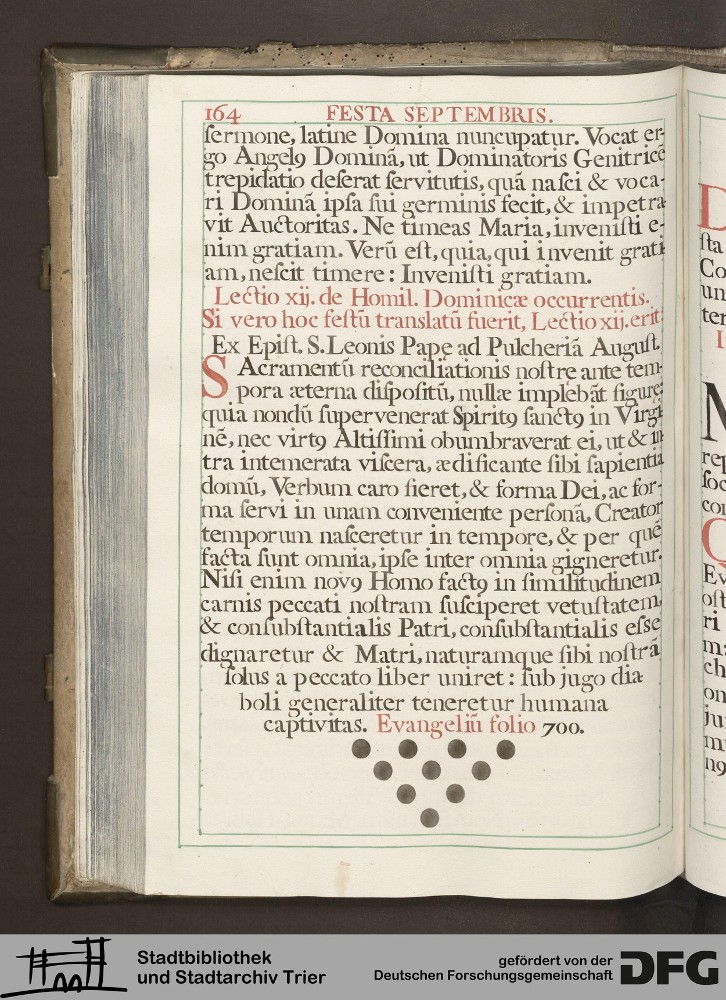 164 FESTA SEPTEMBRIS.
ſermone, latine Domina nuncupatur. Vocat er-
go Angelꝰ Dominã, ut Dominatoris Genitricẽ
trepidatio deſerat ſervitutis, quã naſci & voca-
ri Dominã ipſa ſui germinis fecit, & impetra
vit Auctoritas. Ne timeas Maria, inveniſti e-
nim gratiam. Verũ eſt, quia, qui invenit grati
am, neſcit timere: Inveniſti gratiam.
Lectio xij. de Homil. Dominicæ occurrentis.
Si vero hoc feſtũ translatũ fuerit, Lectio xij. erit:
Ex Epiſt. S. Leonis Papę ad Pulcheriã Auguſt.
SAcramentũ reconciliationis noſtrę ante tem-
pora æterna diſpoſitũ, nullæ implebãt figurę:
quia nondũ ſupervenerat Spiritꝰ ſanctꝰ in Virgi
nẽ, nec virtꝰ Altiſſimi obumbraverat ei, ut & in
tra intemerata viſcera, ædificante ſibi ſapientia
domũ, Verbum caro fieret, & forma Dei, ac for-
ma ſervi in unam conveniente perſonã, Creator
temporum naſceretur in tempore, & per quẽ
facta ſunt omnia, ipſe inter omnia gigneretur.
Niſi enim novꝰ Homo factꝰ in ſimilitudinem
carnis peccati noſtram ſuſciperet vetuſtatem,
& conſubſtantialis Patri, conſubſtantialis eſse
dignaretur & Matri, naturamque ſibi noſtrã
ſolus a peccato liber uniret: ſub jugo dia
boli generaliter teneretur humana
captivitas. Evangeliũ folio 700.
Stadtbibliothek
und Stadtarchiv Trier
gefördert von der
Deutschen Forschungsgemeinschaft
DFG